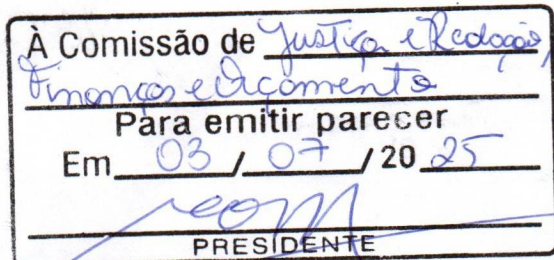 À Comissão de Justiça e Redação,
Finanças e Orçamento
Para emitir parecer
Em 03 / 07 / 20 25
PRESIDENTE